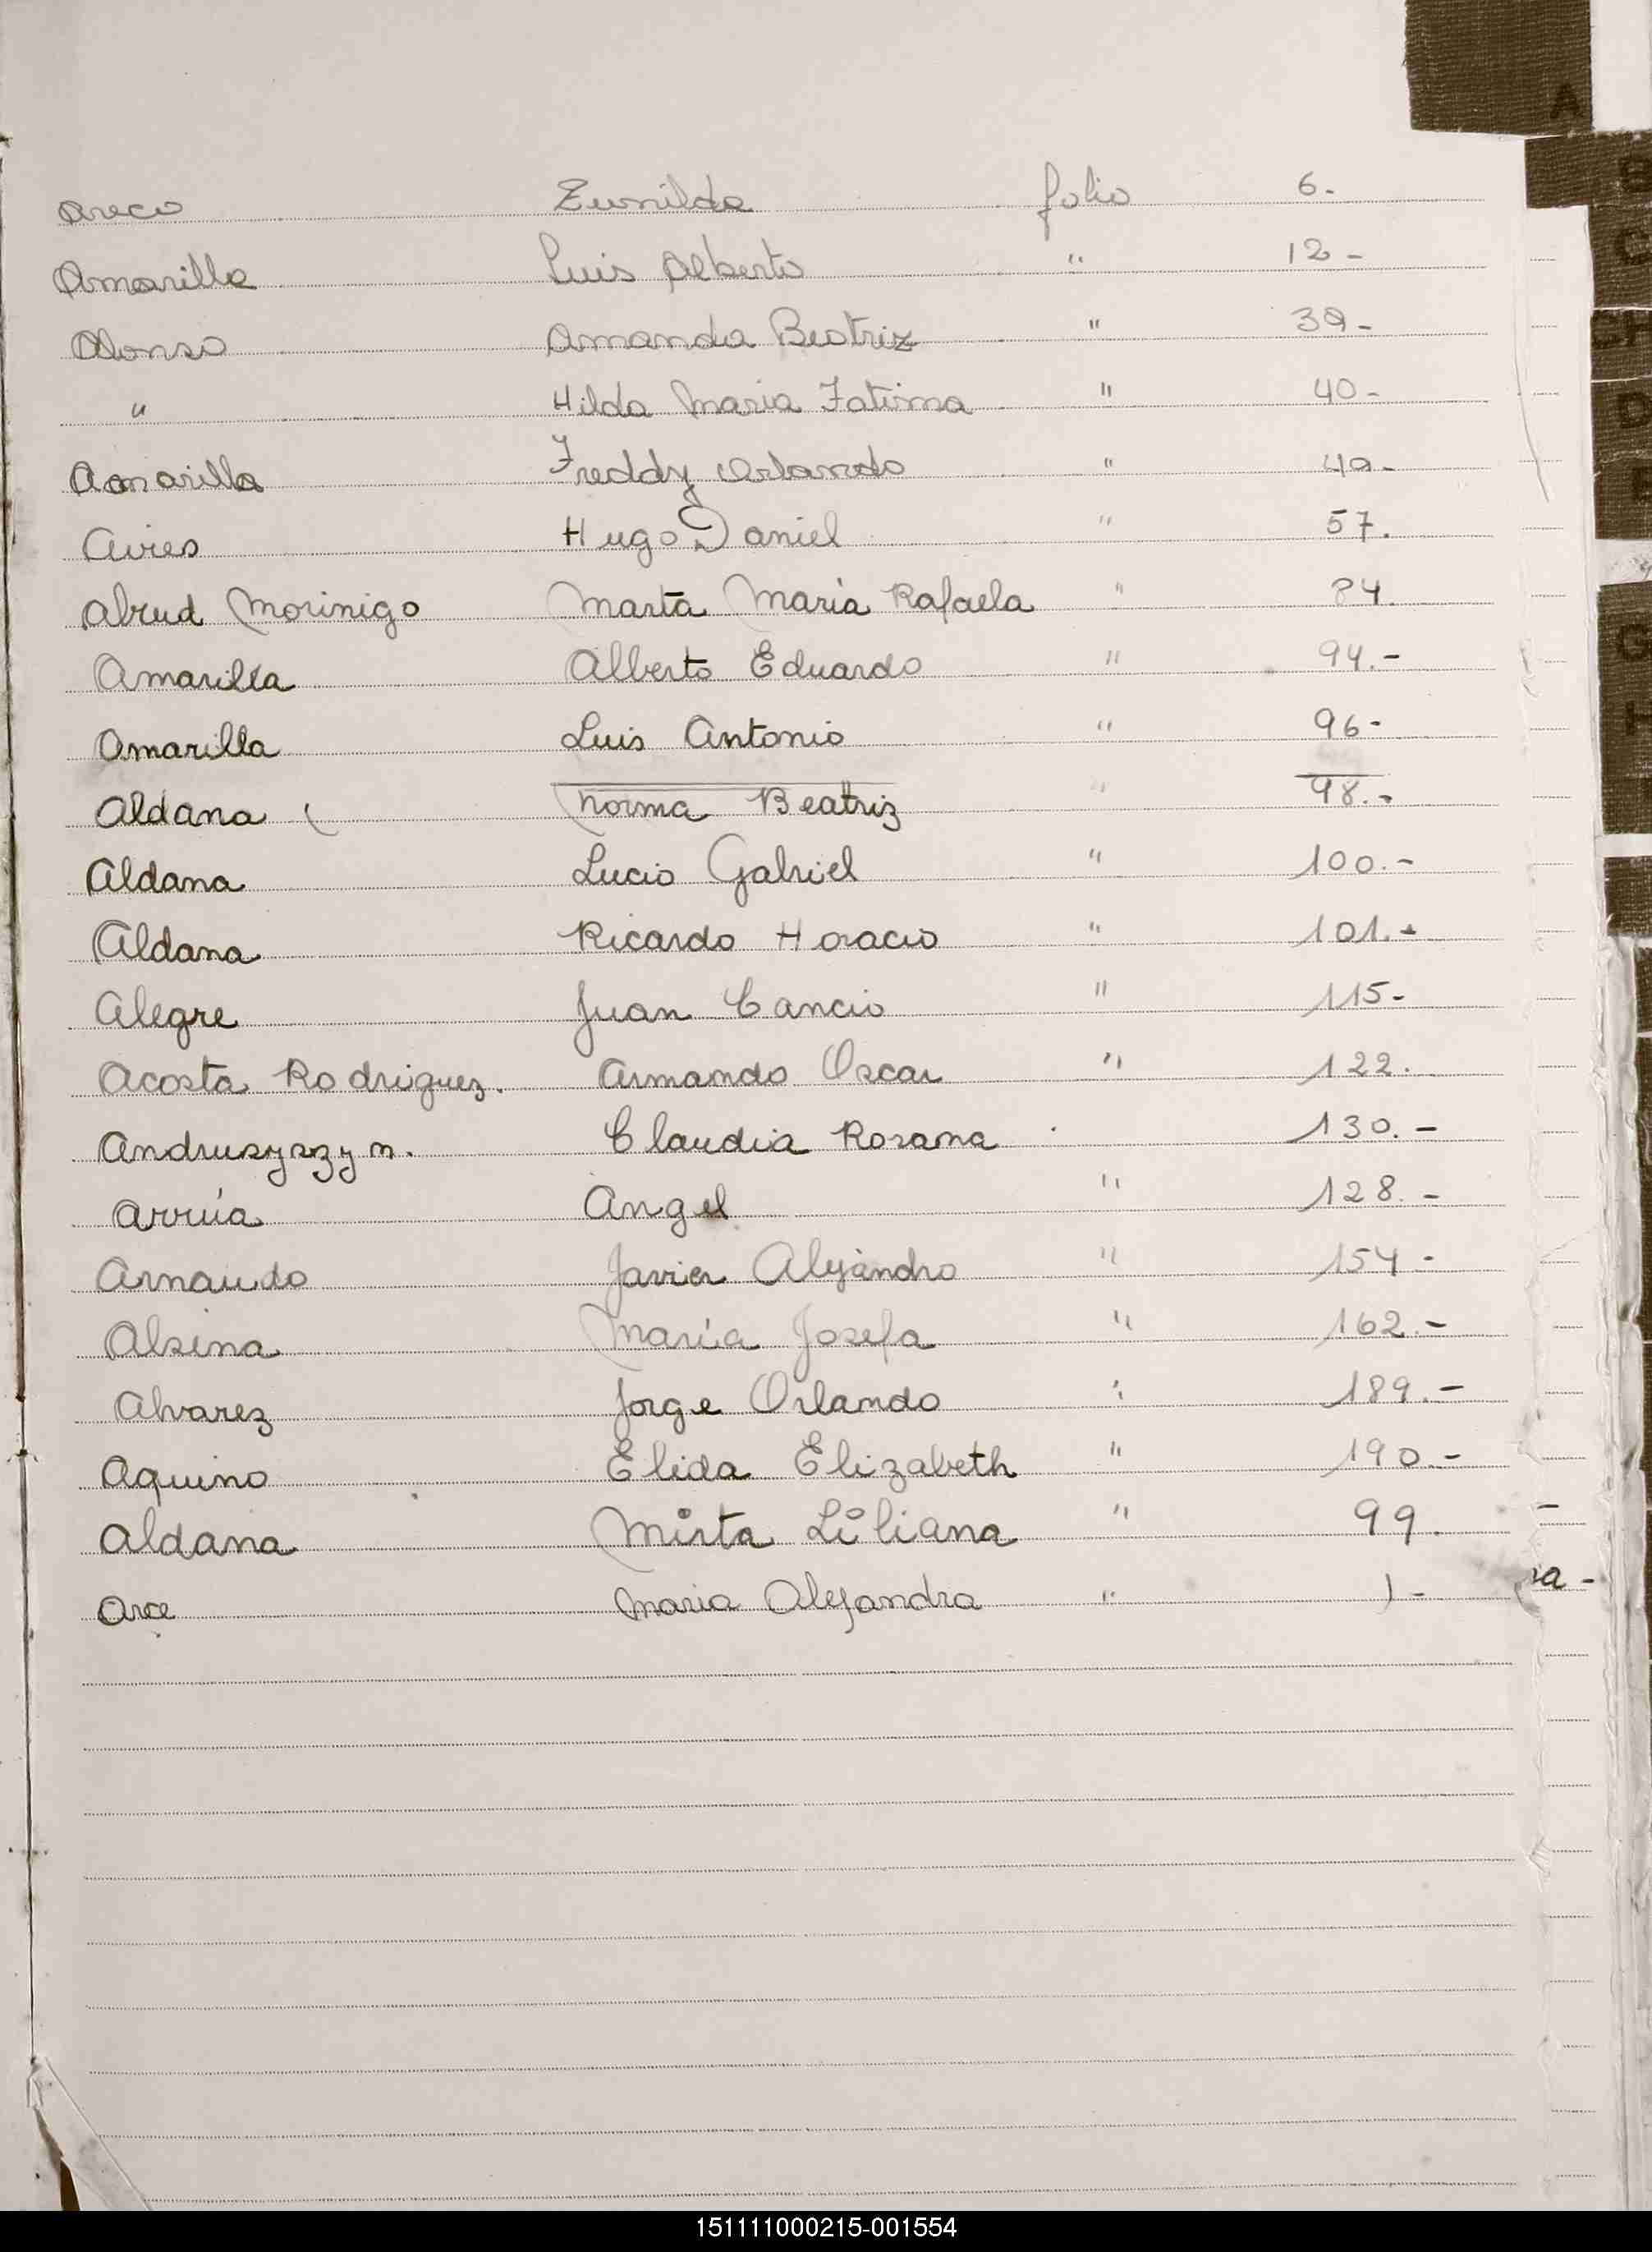 Areco Zunilda folio 6.
Amarilla Luis Alberto " 12 -
Alonso Amanda Beatriz " 39 -
" Hilda Maria Fatima " 40 -
Amarilla Freddy Orlando " 49 -
Aires Hugo Daniel " 57.
Abrud Morinigo Marta María Rafaela " 84.
Amarilla Alberto Eduardo " 94.-
Amarilla Luis Antonio " 96 -
Aldana Norma Beatriz " 98.-
Aldana Lucio Gabriel " 100.-
Aldana Ricardo Horacio " 101.-
Alegre Juan Cancio " 115 -
Acosta Rodriguez. Armando Oscar " 122.
Andruszyszyn. Claudia Rosana 130.-
Arrúa Angel " 128.-
Arnaudo Javier Alejandro " 154 -
Alsina María Josefa " 162.-
Alvarez Jorge Orlando " 189.-
Aquino Elida Elizabeth " 190.-
Aldana Mirta Liliana " 99.
Arce Maria Alejandra " ) -
A
B
C
CH
D
G
H
151111000215-001554